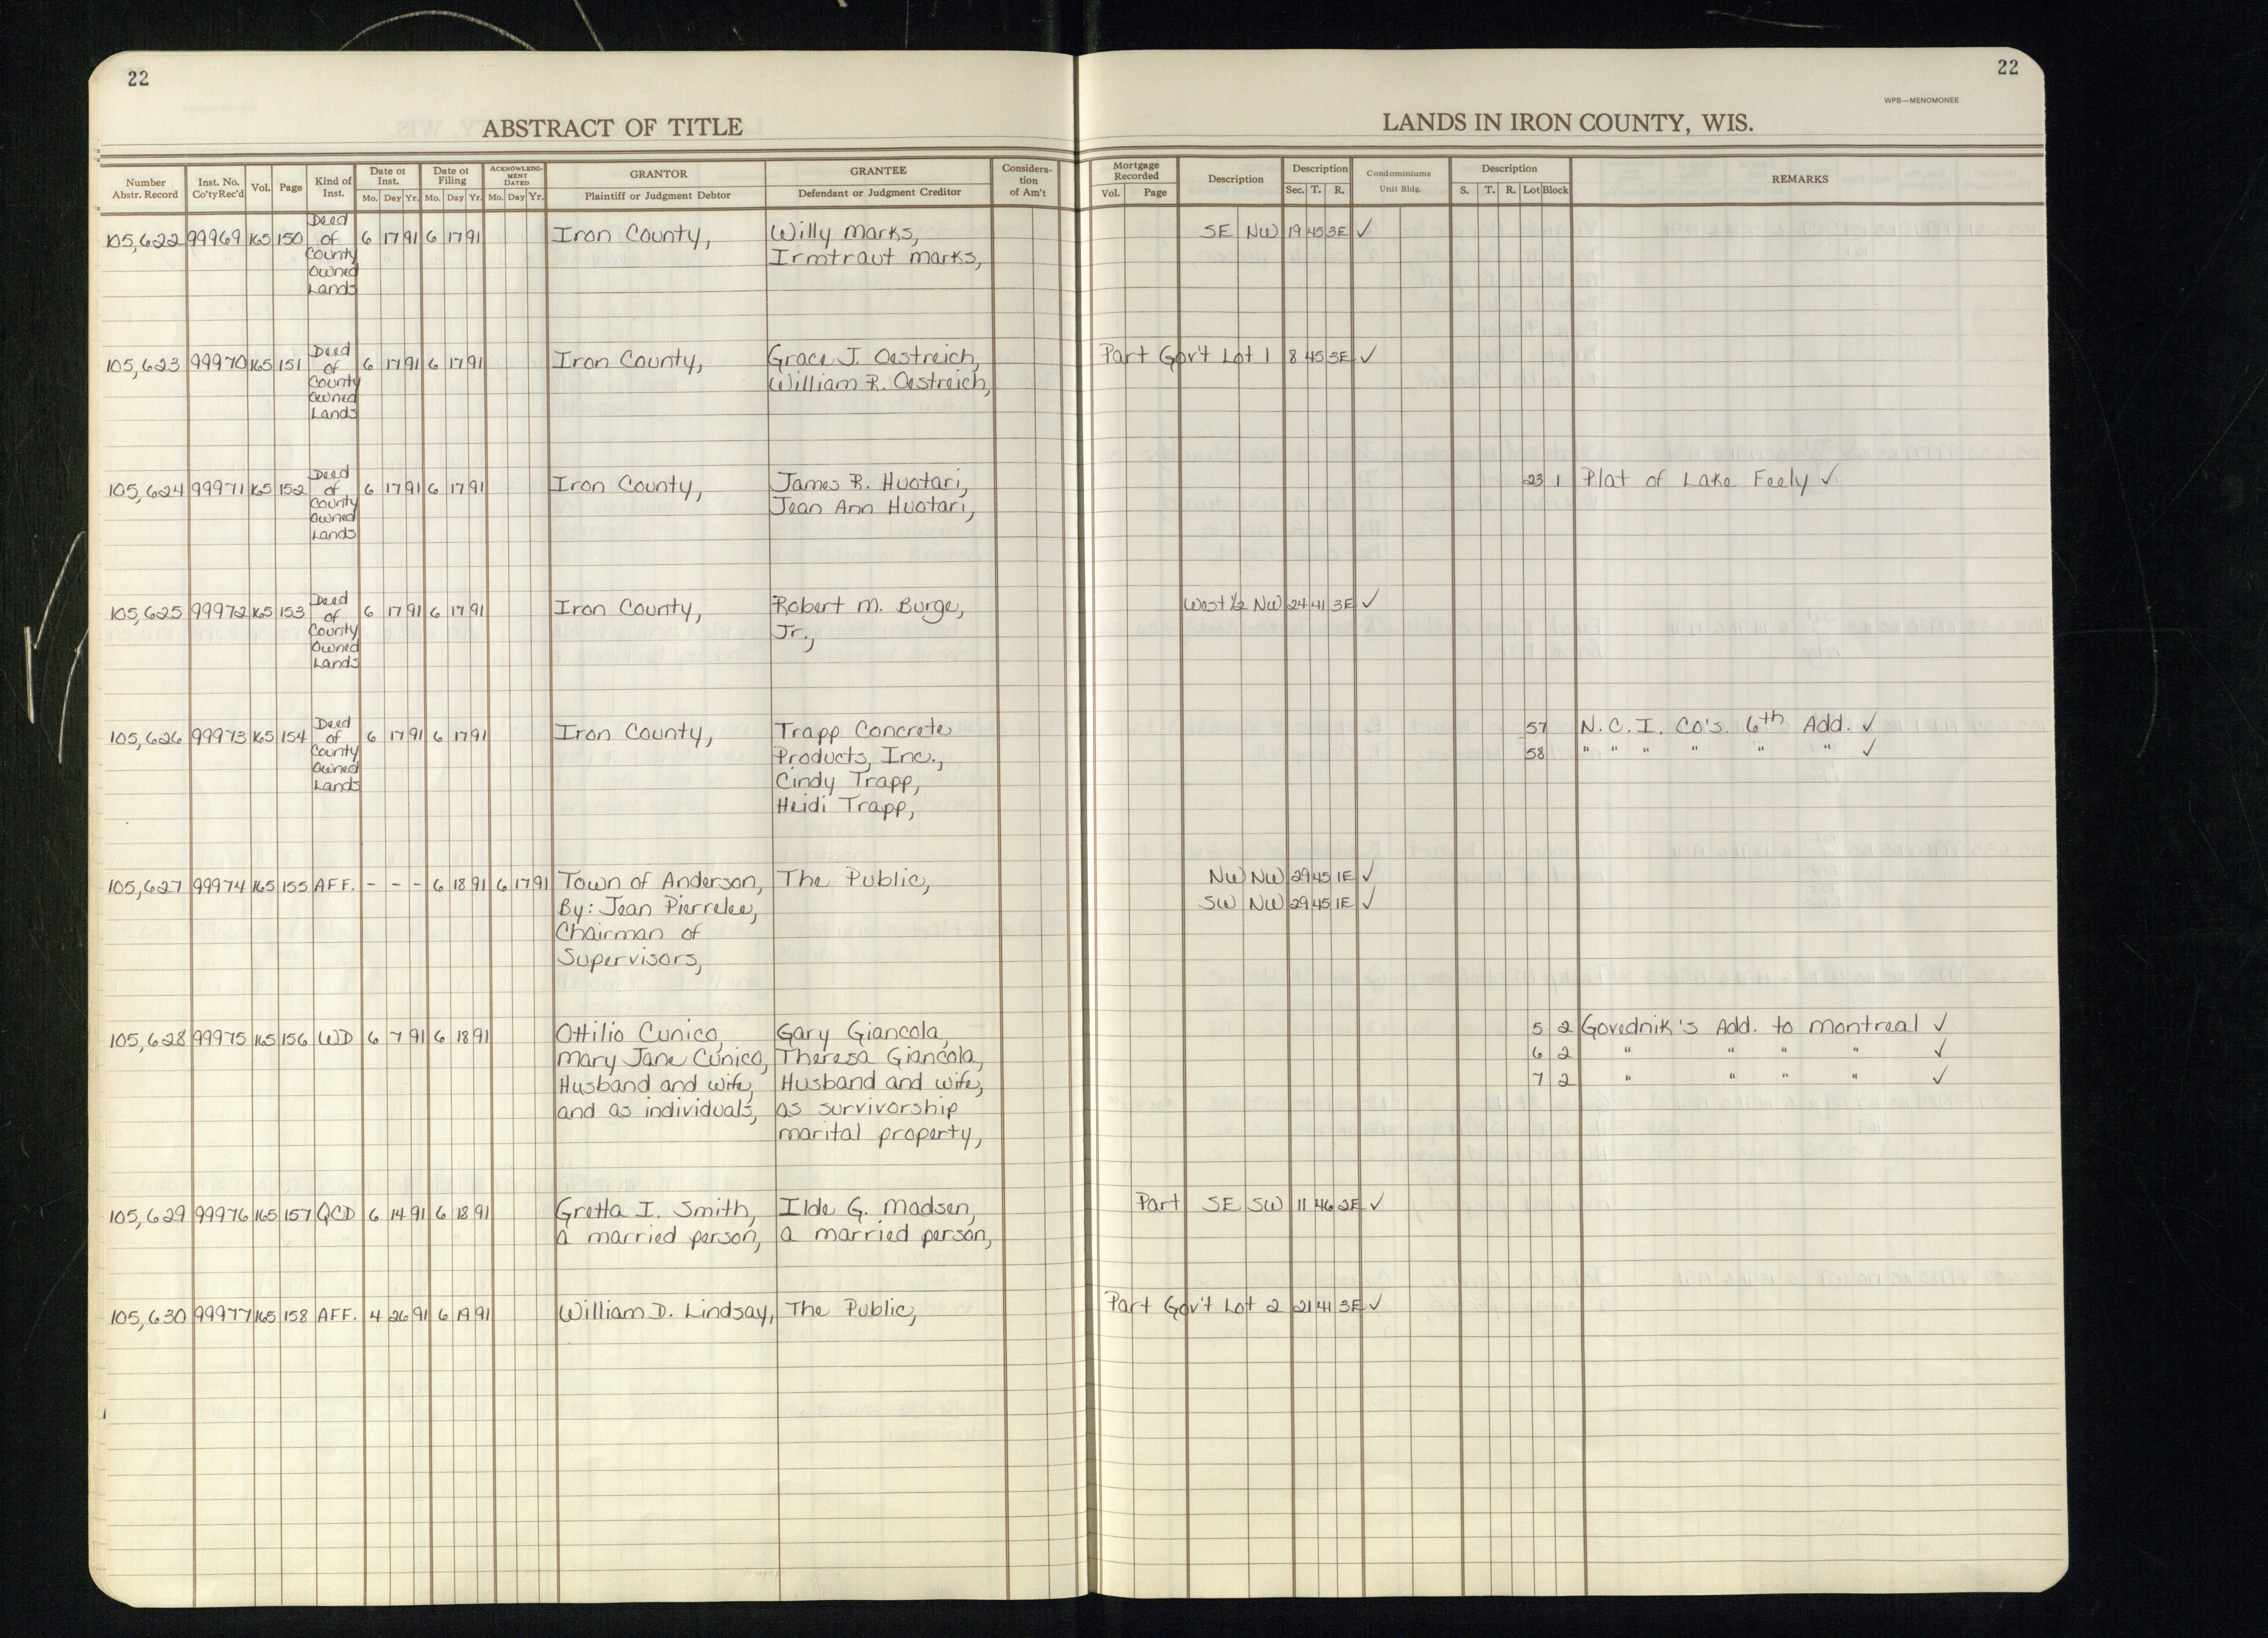 22
22
WPB—MENOMONEE
ABSTRACT OF TITLE
LANDS IN IRON COUNTY, WIS.
Number Abstr. Record
Inst. No. Co'ty Rec'd
Vol.
Page
Kind of Inst.
Date of Inst.
Mo. Day Yr.
Date of Filing
Mo. Day Yr.
ACKNOWLEDGMENT DATED
Mo. Day Yr.
GRANTOR
Plaintiff or Judgment Debtor
GRANTEE
Defendant or Judgment Creditor
Consideration of Am't
Mortgage Recorded
Vol. Page
Description
Description
Sec. T. R.
Condominiums
Unit Bldg.
Description
S. T. R. Lot Block
REMARKS
105,622 99969 165 150 Deed of County Owned Lands 6 17 91 6 17 91 Iron County, Willy Marks, SE NW 19 45 3E ✓
Irmtraut Marks,
105,623 99970 165 151 Deed of County Owned Lands 6 17 91 6 17 91 Iron County, Grace J. Oestreich, Part Gov't Lot 1 8 45 3E ✓
William R. Oestreich,
105,624 99971 165 152 Deed of County Owned Lands 6 17 91 6 17 91 Iron County, James R. Huotari, 23 1 Plat of Lake Feely ✓
Jean Ann Huotari,
105,625 99972 165 153 Deed of County Owned Lands 6 17 91 6 17 91 Iron County, Robert M. Burge, West ½ NW 24 41 3E ✓
Jr.,
105,626 99973 165 154 Deed of County Owned Lands 6 17 91 6 17 91 Iron County, Trapp Concrete 57 N.C.I. Co's. 6th Add. ✓
Products, Inc., 58 " " " " " " ✓
Cindy Trapp,
Heidi Trapp,
105,627 99974 165 155 AFF. - - - 6 18 91 6 17 91 Town of Anderson, The Public, NW NW 29 45 1E ✓
By: Jean Pierrelee, SW NW 29 45 1E ✓
Chairman of
Supervisors,
105,628 99975 165 156 WD 6 7 91 6 18 91 Ottilio Cunico, Gary Giancola, 5 2 Govednik's Add. to Montreal ✓
Mary Jane Cunico, Theresa Giancola, 6 2 " " " " ✓
Husband and wife, Husband and wife, 7 2 " " " " ✓
and as individuals, as survivorship
marital property,
105,629 99976 165 157 QCD 6 14 91 6 18 91 Gretta I. Smith, Ilde G. Madsen, Part SE SW 11 46 2E ✓
a married person, a married person,
105,630 99977 165 158 AFF. 4 26 91 6 19 91 William D. Lindsay, The Public, Part Gov't Lot 2 21 41 3E ✓